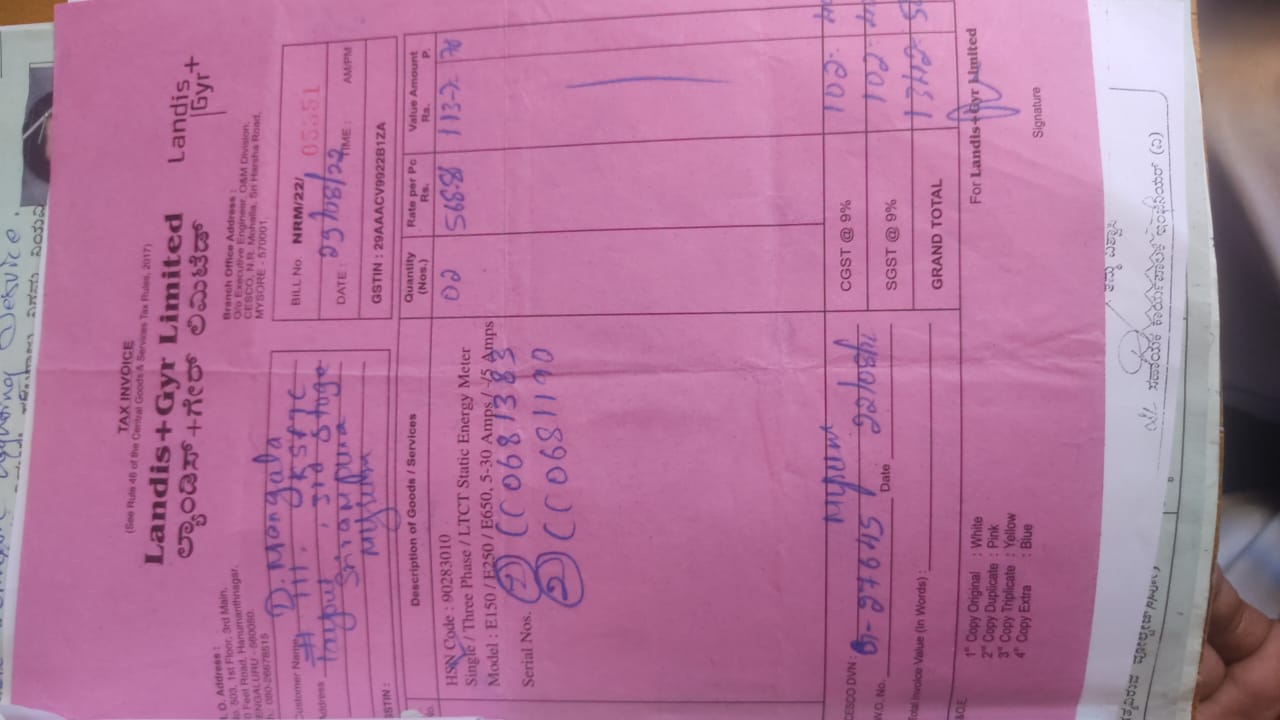 TAX INVOICE
(See Rule 46 of the Central Goods & Services Tax Rules, 2017)
Landis+Gyr Limited
ಲ್ಯಾಂಡಿಸ್+ಗೇರ್ ಲಿಮಿಟೆಡ್
Landis
Gyr+
Address :
503, 1st Floor, 3rd Main,
Feet Road, Hanumanthnagar,
BENGALURU - 560050.
080-26678615
Branch Office Address :
O/o Executive Engineer, O&M Division,
CESCO, N.R. Mohalla, Sri Harsha Road,
MYSORE - 570001.
Customer Name D. Mangala
Address # 111, JKSTPC
3rd Stage
Srirampura
Mysuru
GSTIN :
BILL No. NRM/22/ 05351
DATE : 23/08/22 TIME : AM/PM
GSTIN : 29AAACV9922B1ZA
Description of Goods / Services
Quantity (Nos.)
Rate per Pc Rs.
Value Amount Rs. P.
HSN Code : 90283010
Single / Three Phase / LTCT Static Energy Meter
Model : E150 / E250 / E650, 5-30 Amps / -/5 Amps
02 568.8 1137 70
Serial Nos. 1 CC0681383
2 CC0681190
CESCO DVN : Mysuru
W.O. No. 27645 Date 22/08/22
Total Invoice Value (In Words) :
CGST @ 9% 102.40
SGST @ 9% 102.40
GRAND TOTAL 1342.50
& O.E
1st Copy Original : White
2nd Copy Duplicate : Pink
3rd Copy Triplicate : Yellow
4th Copy Extra : Blue
For Landis+Gyr Limited
Signature
ಸಹಾಯಕ ಕಾರ್ಯಪಾಲಕ ಇಂಜಿನಿಯರ್ (ವಿ)